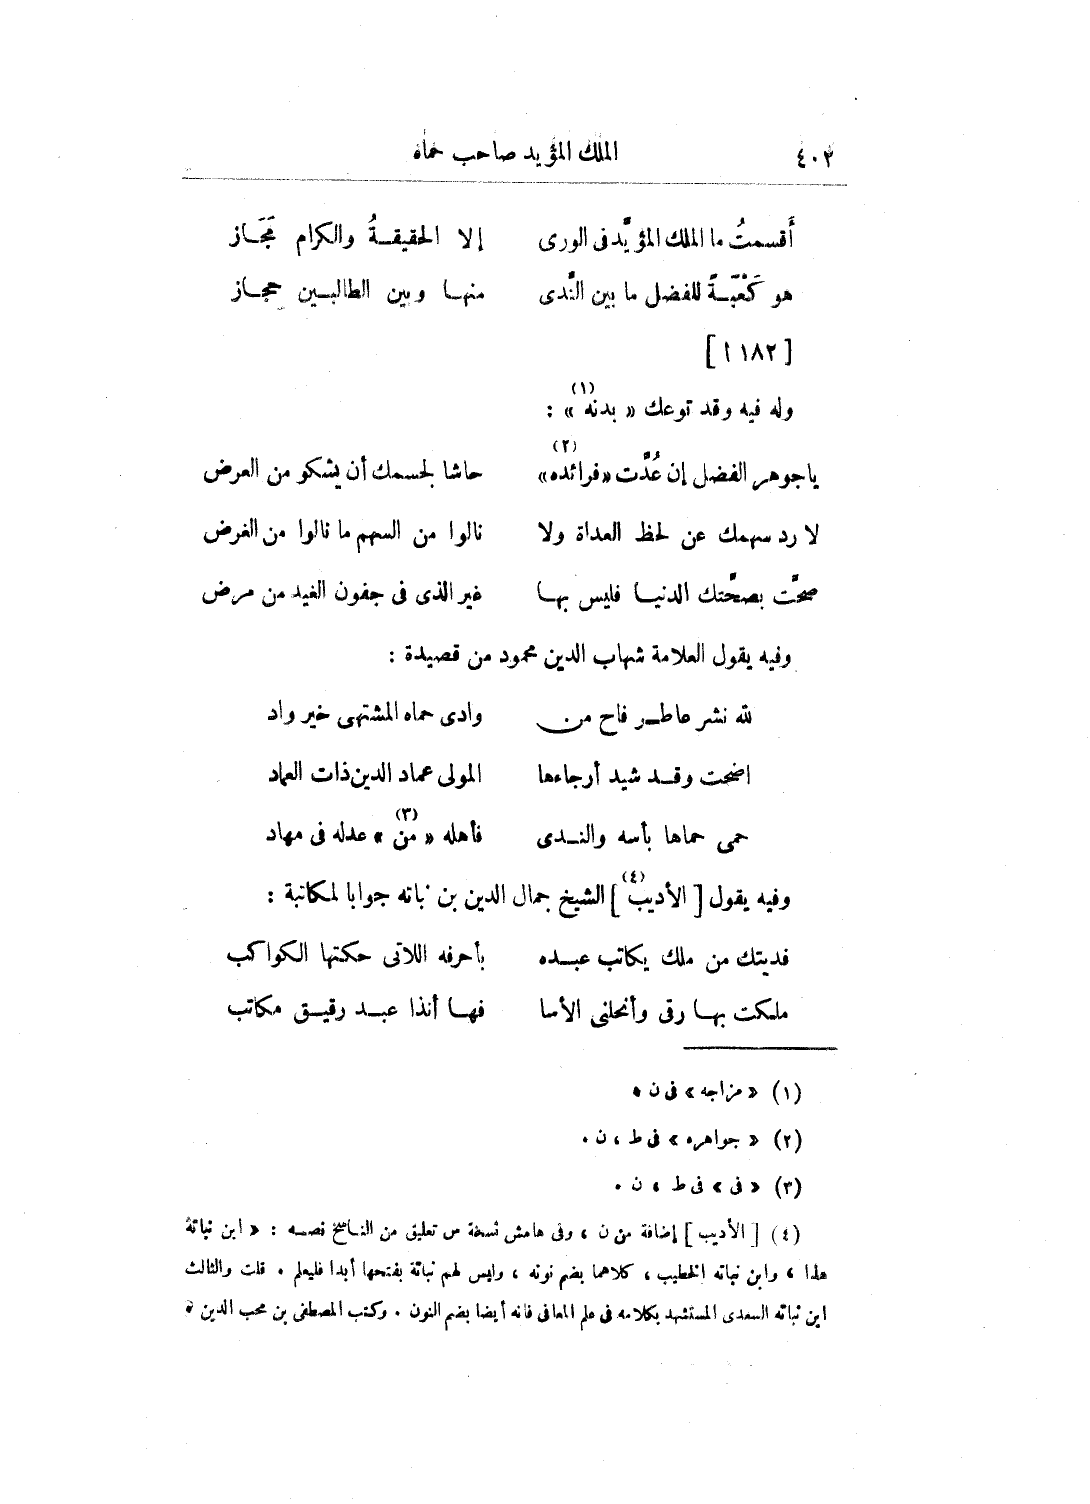 ٤٠٢ الملك المؤيد صاحب حماه
أَقسمتُ ما الملك المؤيَّد فى الورى إلا الحقيقـةُ والكرام مَجَـاز
هو كَعْبَـةً للفضل ما بين النَّدى منهـا وبين الطالبـين حجـاز
[ ١٨٢ ا ]
وله فيه وقد توعك « بدنه (١) » :
ياجوهر الفضل إن عُدَّت «فرائده (٢)» حاشا لجسمك أن يشكو من العرض
لا رد سهمك عن لحظ العداة ولا نالوا من السهم ما نالوا من الغرض
صحَّت بصحَّتك الدنيـا فليس بهـا غير الذى فى جفون الغيد من مرض
وفيه يقول العلامة شهاب الدين محمود من قصيدة :
لله نشر عاطـر فاح من وادى حماه المشتهى خير واد
اضحت وقـد شيد أرجاءها المولى عماد الدين ذات العماد
حمى حماها بأسه والنـدى فأهله « من (٣) » عدله فى مهاد
وفيه يقول [ الأديب (٤) ] الشيخ جمال الدين بن نباته جوابا لمكاتبة :
فديتك من ملك يكاتب عبـده بأحرفه اللاتى حكتها الكواكب
ملكت بهـا رقى وأنحلنى الأسا فهـا أنذا عبـد رقيـق مكاتب
(١) « مزاجه » فى ن .
(٢) « جواهره » فى ط ، ن .
(٣) « فى » فى ط ، ن .
(٤) [ الأديب ] إضافة من ن ، وفى هامش نسخة س تعليق من الناسخ نصـه : « ابن نباتة
هذا ، وابن نباته الخطيب ، كلاهما بضم نونه ، وليس لهم نباتة بفتحها أبدا فليعلم . قلت والثالث
ابن نباته السعدى المستشهد بكلامه فى علم المعانى فانه أيضا بضم النون . وكتب المصطفى بن محب الدين »